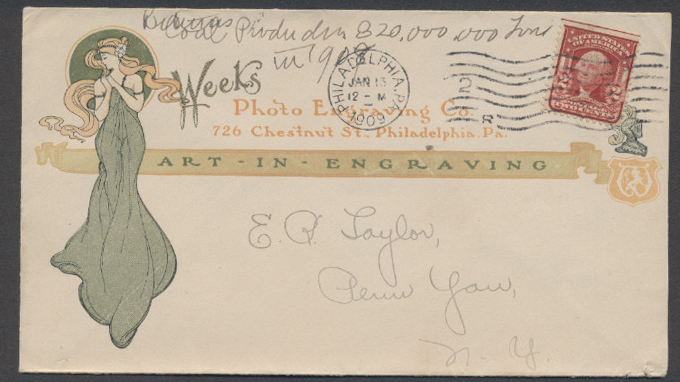 Coal Production 820,000,000 Tons
in 1908
Weeks
Photo Engraving Co.
726 Chestnut St., Philadelphia, Pa.
ART - IN - ENGRAVING
PHILADELPHIA, PA.
JAN 13
12 - M
1909
2
R
UNITED STATES
OF AMERICA
2 2
TWO CENTS
E. R. Taylor,
Penn Yan,
N. Y.